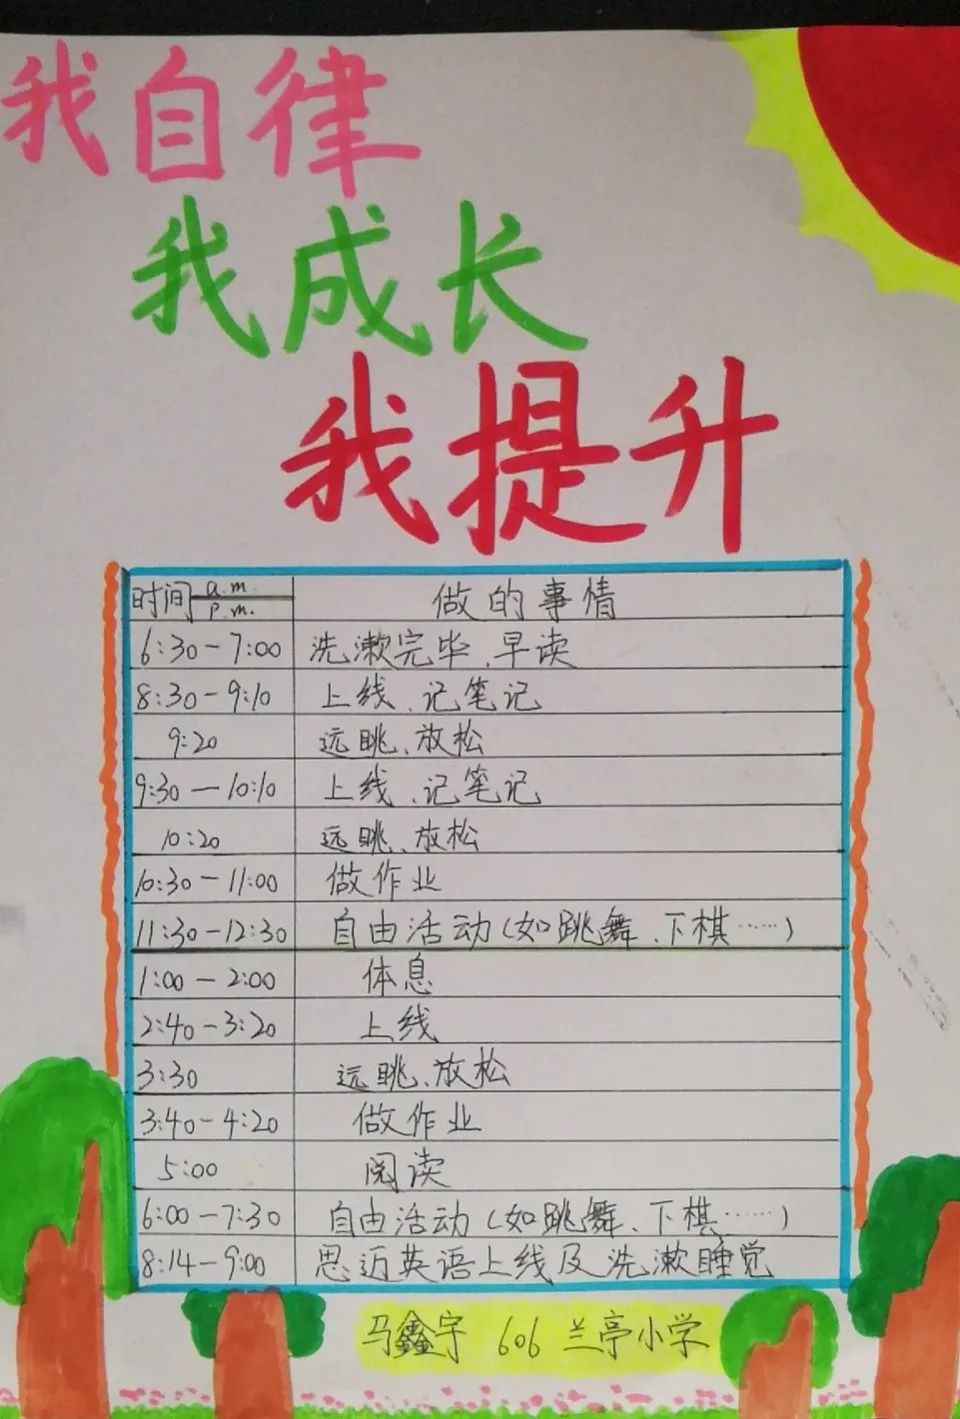 我自律
我成长
我提升
时间 a.m. p.m. 做的事情
6:30-7:00 洗漱完毕、早读
8:30-9:10 上线、记笔记
9:20 远眺、放松
9:30-10:10 上线、记笔记
10:20 远眺、放松
10:30-11:00 做作业
11:30-12:30 自由活动(如跳舞、下棋……)
1:00-2:00 体息
2:40-3:20 上线
3:30 远眺、放松
3:40-4:20 做作业
5:00 阅读
6:00-7:30 自由活动(如跳舞、下棋……)
8:14-9:00 思迈英语上线及洗漱睡觉
马鑫宇 606 兰亭小学